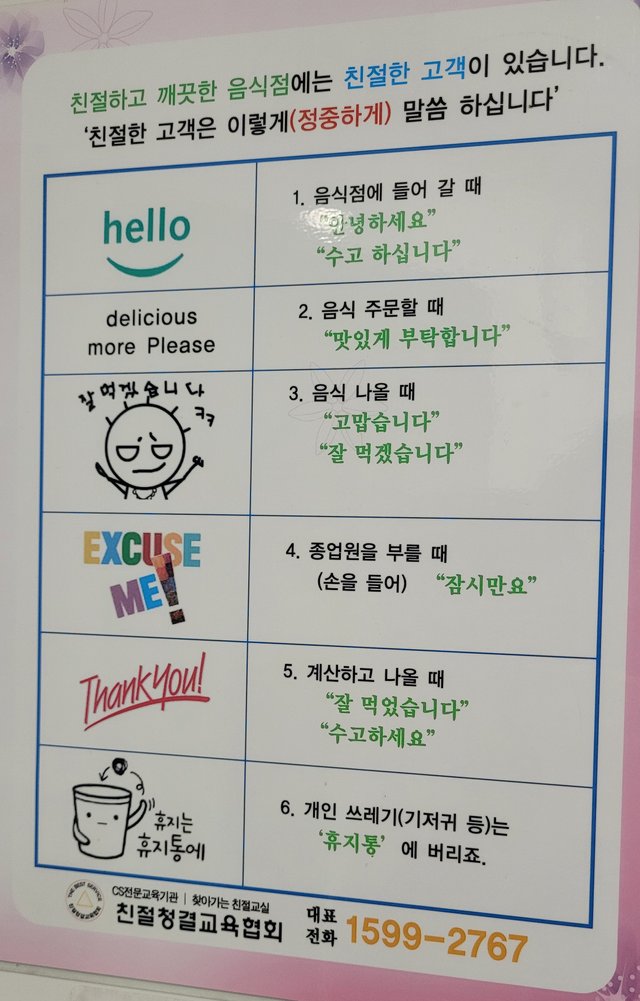 친절하고 깨끗한 음식점에는 친절한 고객이 있습니다.
‘친절한 고객은 이렇게(정중하게) 말씀 하십니다’
hello
1. 음식점에 들어 갈 때
“안녕하세요”
“수고 하십니다”
delicious
more Please
2. 음식 주문할 때
“맛있게 부탁합니다”
잘 먹겠습니다
ㅋㅋ
3. 음식 나올 때
“고맙습니다”
“잘 먹겠습니다”
EXCUSE
ME!
4. 종업원을 부를 때
(손을 들어) “잠시만요”
Thank you!
5. 계산하고 나올 때
“잘 먹었습니다”
“수고하세요”
휴지는
휴지통에
6. 개인 쓰레기(기저귀 등)는
‘휴지통’ 에 버리죠.
THE BEST SERVICE
친절청결교육협회
CS전문교육기관 | 찾아가는 친절교실
친절청결교육협회
대표
전화 1599-2767